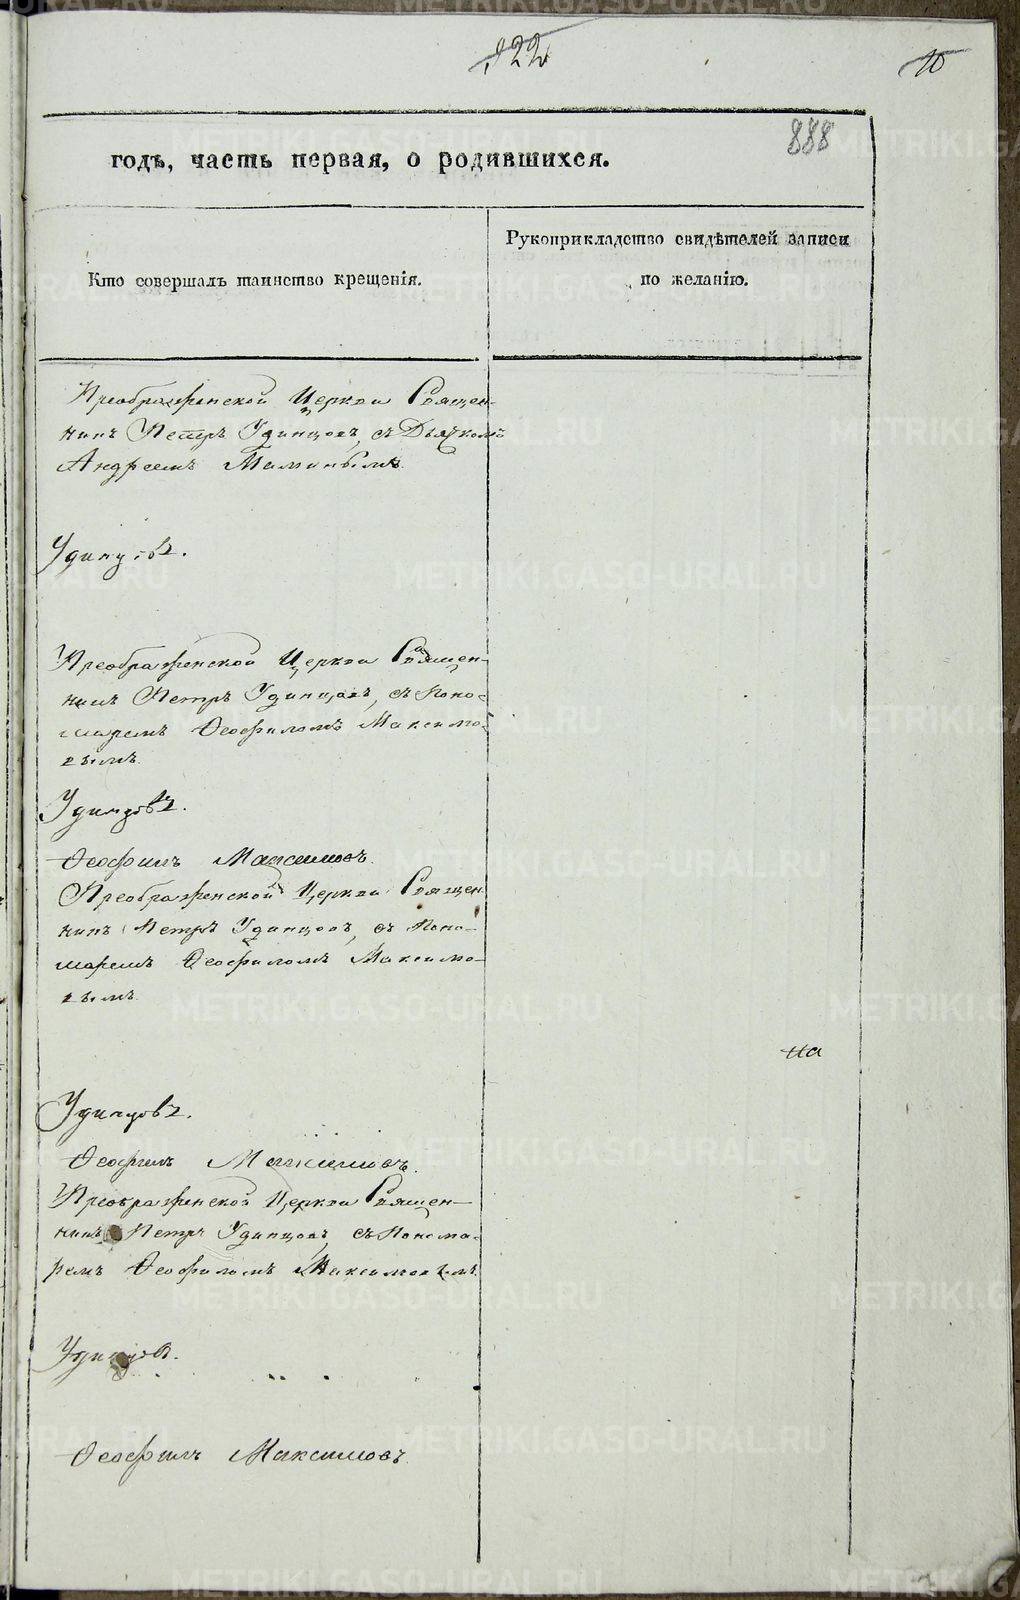 122
10
888
годъ, часть первая, о родившихся.
Кто совершалъ таинство крещенія.
Рукоприкладство свидѣтелей записи
по желанію.
Преображенской Церкви Священ-
никъ Петръ Удинцовъ, съ Дьячкомъ
Андреемъ Маминымъ.
Удинцовъ.
Преображенской Церкви Священ-
никъ Петръ Удинцовъ, съ Поно-
маремъ Ѳеофиломъ Максимо-
вымъ.
Удинцовъ.
Ѳеофилъ Максимовъ.
Преображенской Церкви Священ-
никъ Петръ Удинцовъ, съ Поно-
маремъ Ѳеофиломъ Максимо-
вымъ.
Удинцовъ.
Ѳеофилъ Максимовъ.
Преображенской Церкви Священ-
никъ Петръ Удинцовъ, съ Понома-
ремъ Ѳеофиломъ Максимовымъ.
Удинцовъ.
Ѳеофилъ Максимовъ.
METRIKI.GASO-URAL.RU